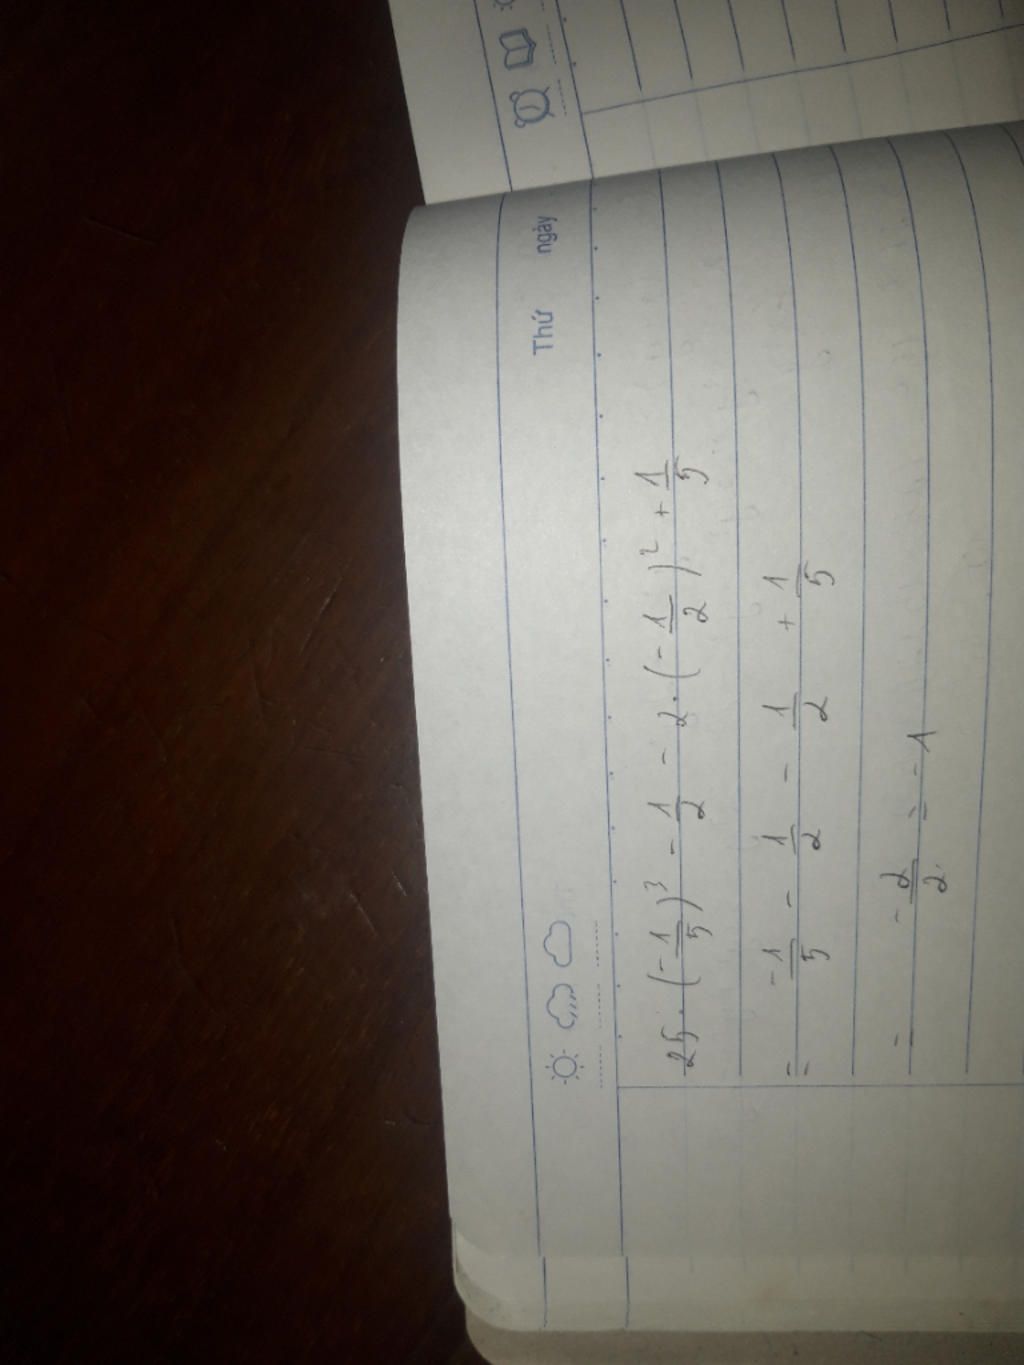 Thứ ngày
25 . (-1/5)³ - 1/2 - 2 . (-1/2)² + 1/5
= -1/5 - 1/2 - 1/2 + 1/5
= -2/2 = -1